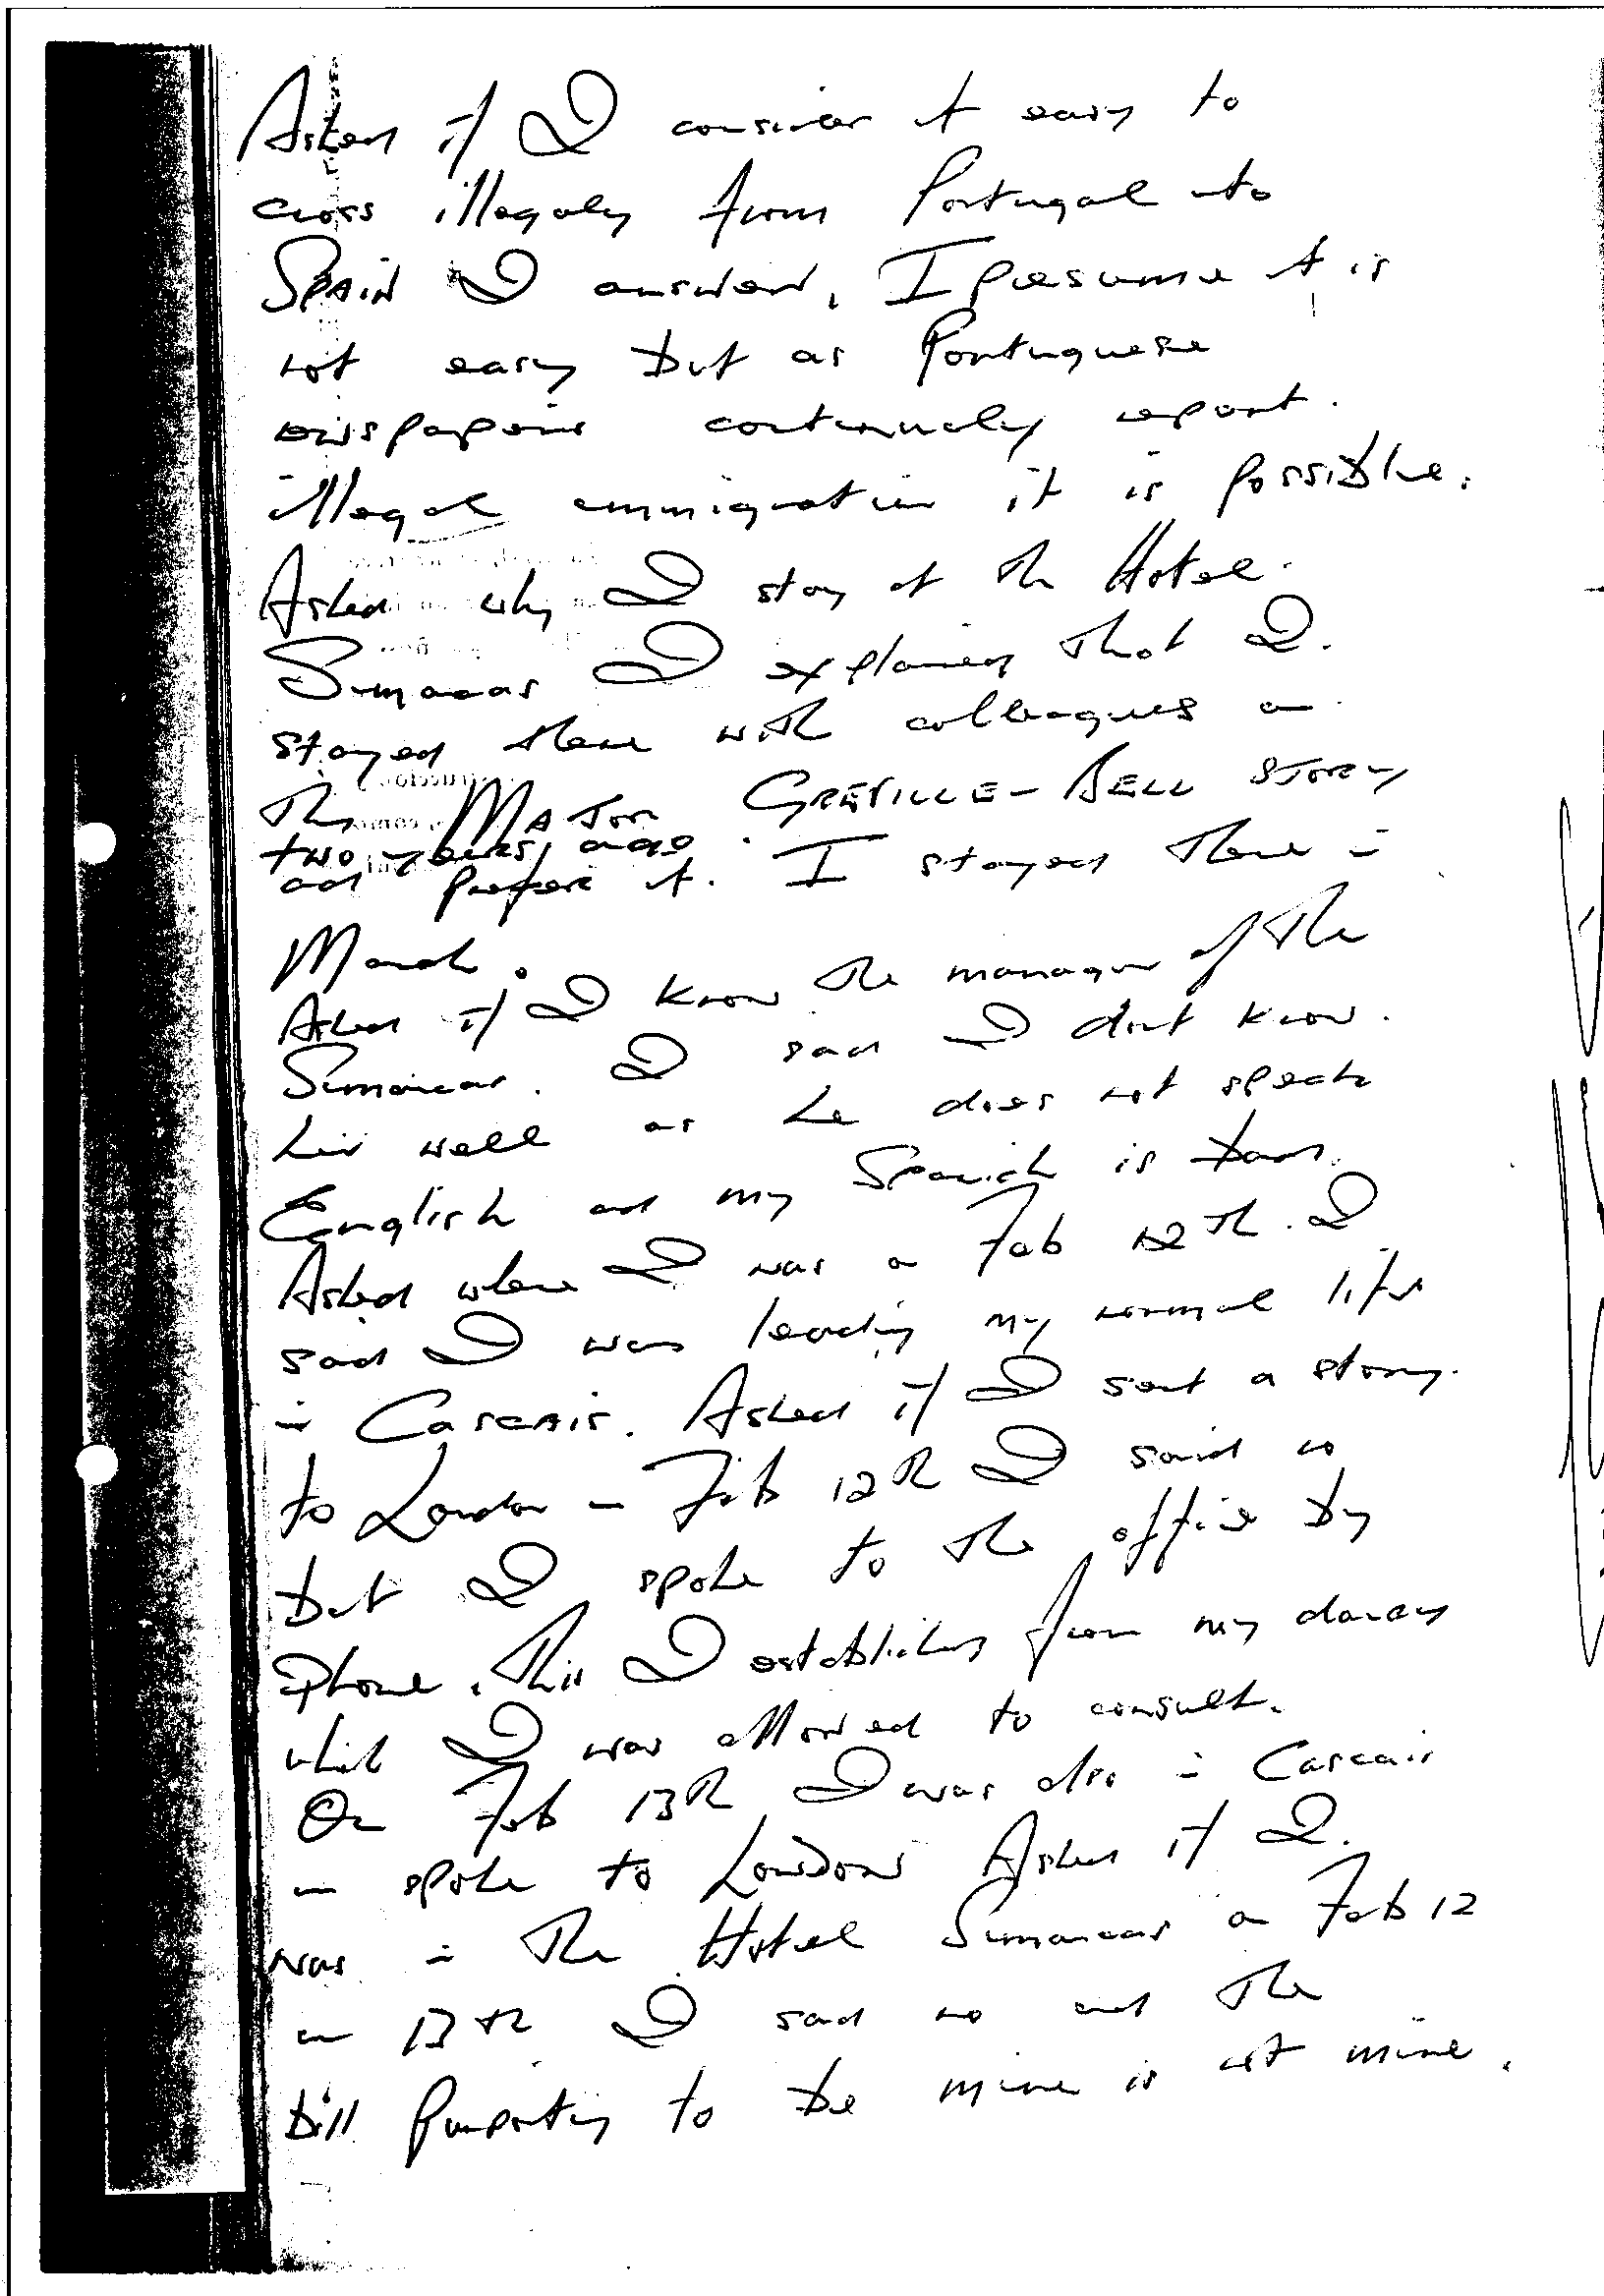 Asked if I consider it easy to
cross illegaly from Portugal into
SPAIN I answered, I presume it is
not easy but as Portuguese
newspapers continuely report
illegal emmigration it is possible.
Asked why I stay at the Hotel
Simancas I explained that I
stayed there with colleagues on
the MAJOR GREVILLE-BELL STORY
two years ago
and prefere it. I stayed there in
March.
Asked if I know the manager of the
Simancas. I said I dont know
him well as he does not speak
English and my Spanish is bad.
Asked where I was on Feb 12th. I
said I was leading my normal life
in CASCAIS. Asked if I sent a story
to London on Feb 12th I said no
but I spoke to the office by
phone. This I established from my diary
which I was allowed to consult.
On Feb 13th I was also in Cascais
and spoke to LONDON Asked if I
was in the Hotel Simancas on Feb 12
or 13th I said no and the
bill purporting to be mine is not mine.